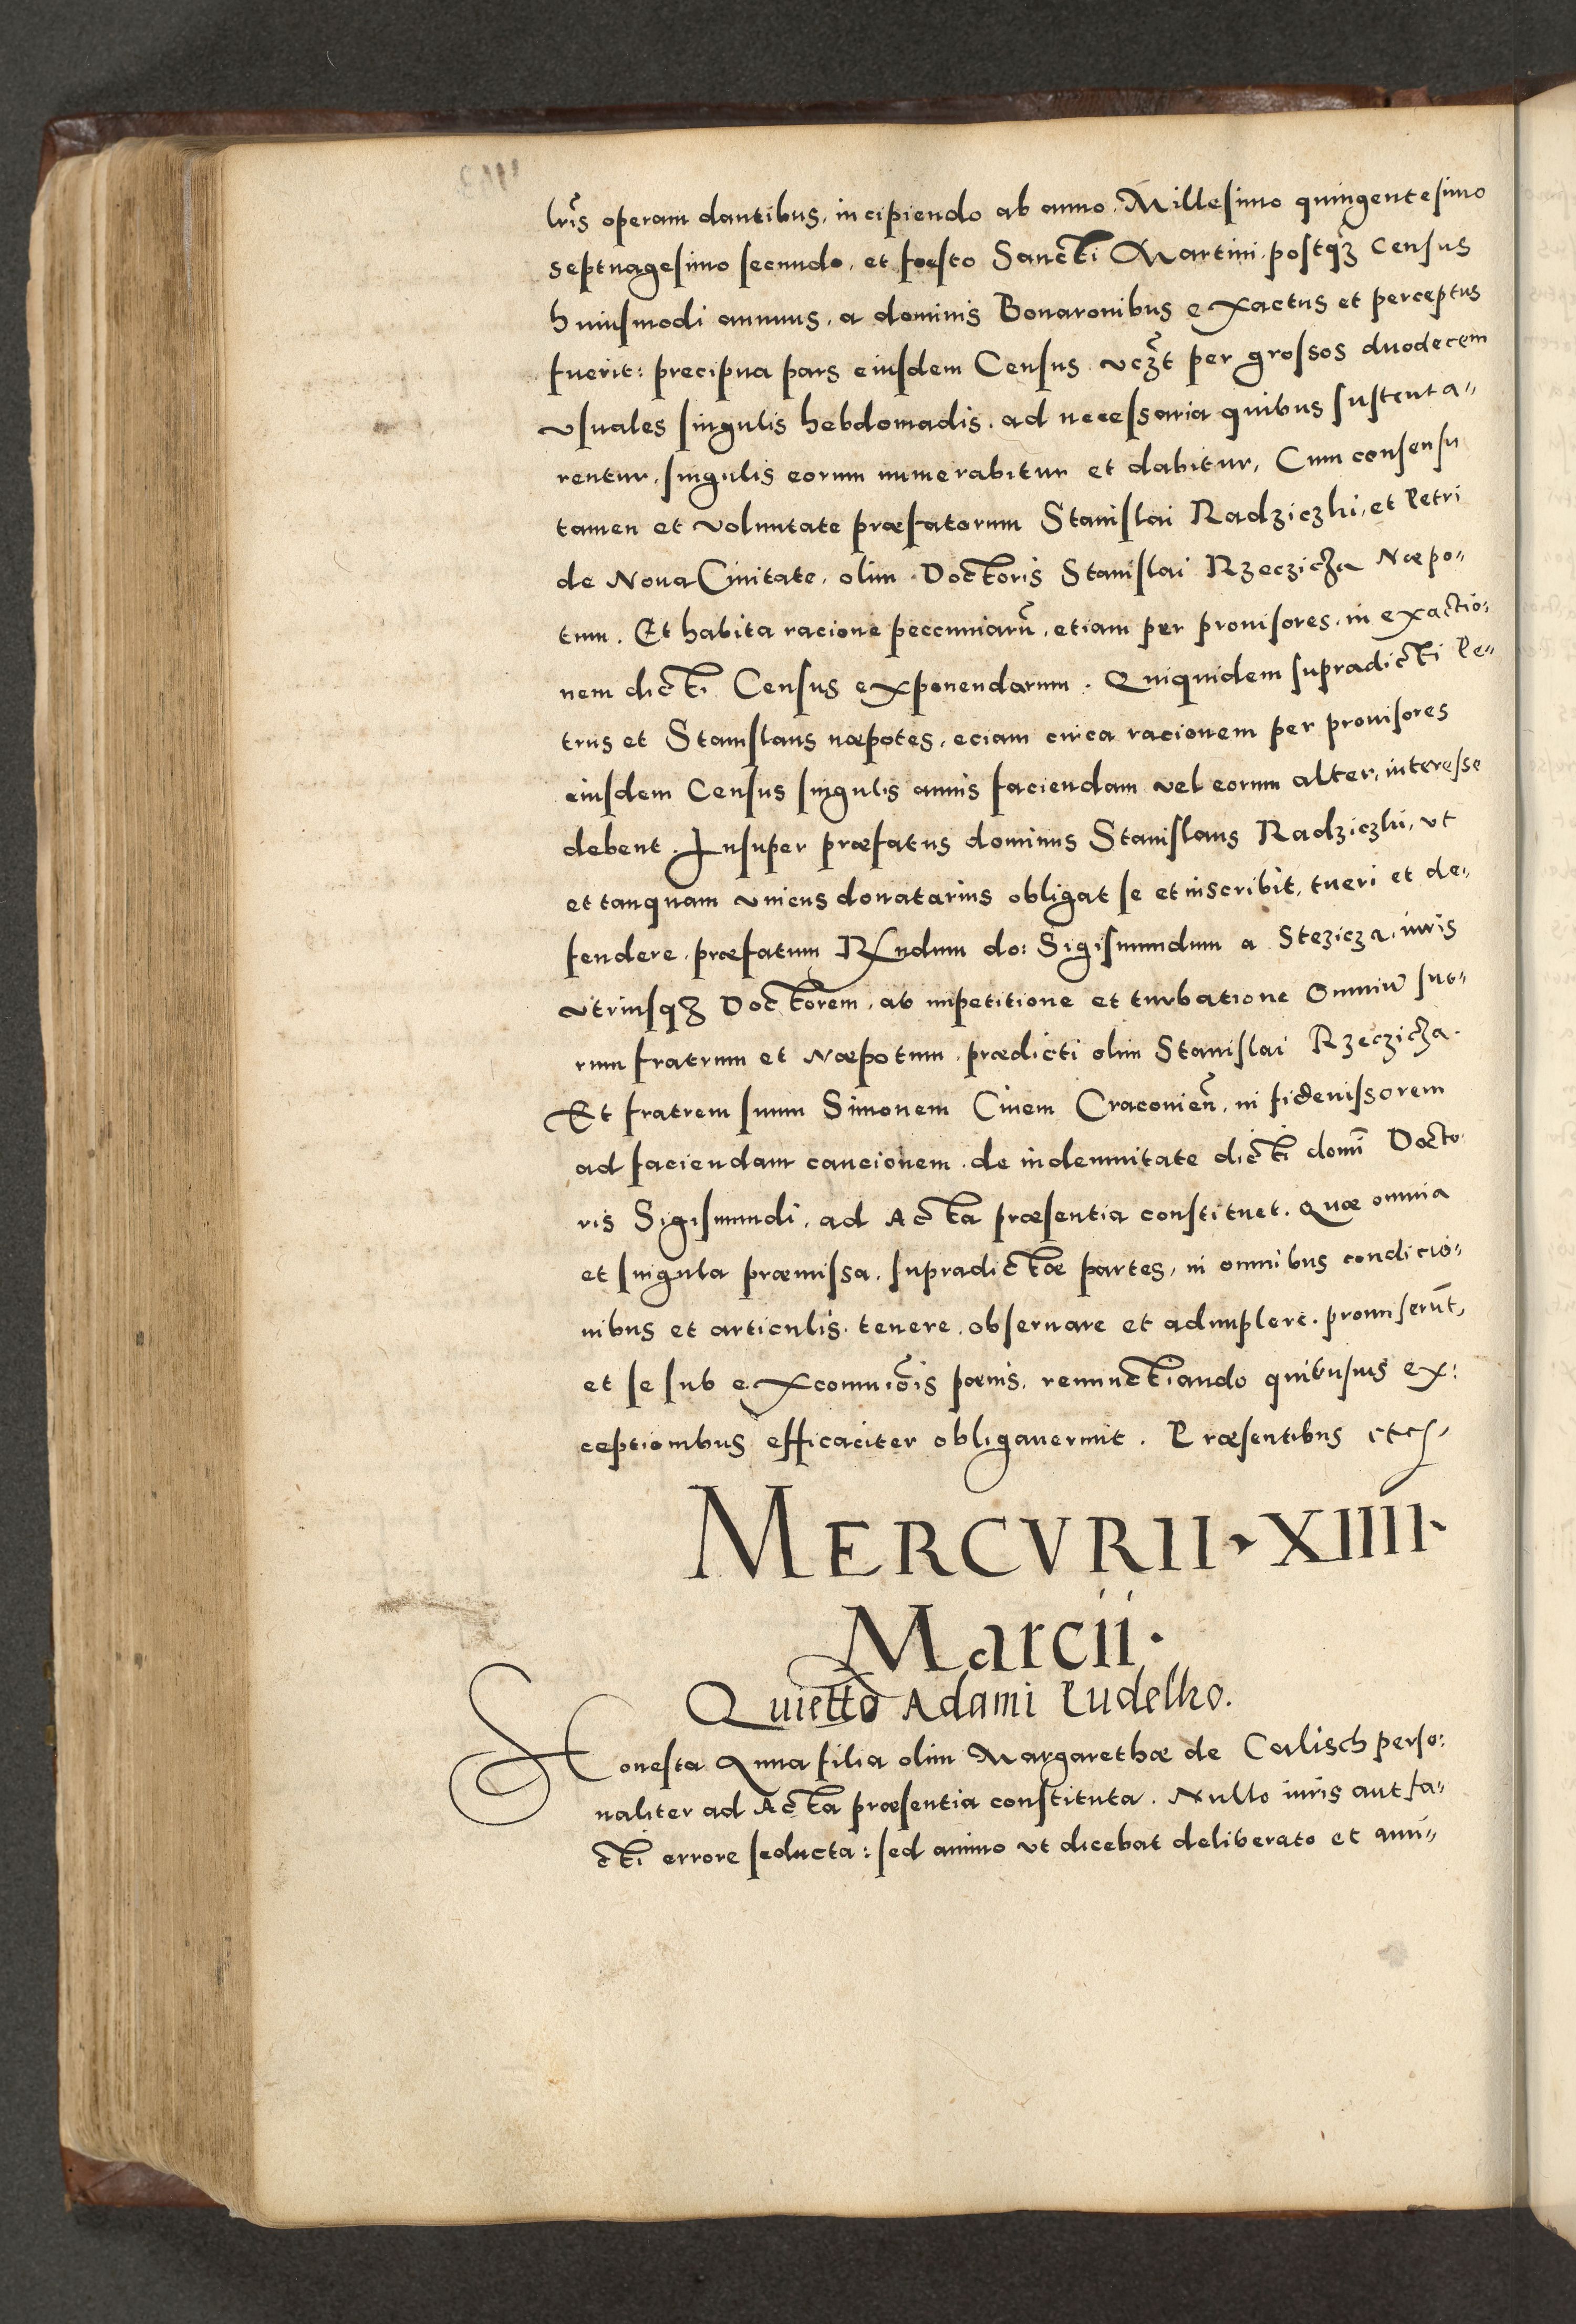 lrīs operam dantibus, incipiendo ab anno. Millesimo quingentesimo
septuagesimo secundo, et foesto Sancti Martini, postq̄ꝫ Census
huiusmodi annuus, a dominis Bonaronibus exactus et perceptus
fuerit: precipua pars eiusdem Census vcꝫt per grossos duodecem
vsuales singulis hebdomadis, ad necessaria quibus sustenta„
rentur, singulis eorum numerabitur et dabitur, Cum consensu
tamen et voluntate præfatorum Stanislai Radziczki, et Petri
de Noua Ciuitate, olim Doctoris Stanislai Rzeczicza Næpo„
tum. Et habita racione peccuniarū, etiam per prouisores, in exactio:
nem dicti Census exponendarum. Quiquidem supradicti Pe„
trus et Stanislaus næpotes, eciam circa racionem per prouisores
eiusdem Census singulis annis faciendam vel eorum alter, interesse
debent. Insuper præfatus dominus Stanislaus Radziczki, vt
et tanquam vnicus donatarius obligat se et inscribit, tueri et de„
fendere, præfatum Rndum do: Sigismundum a Stezicza, iuris
vtriusqꝫ Doctorem, ab impetitione et turbatione Omniū suo„
rum fratrum et Næpotum, prædicti olim Stanislai Rzeczicza.
Et fratrem suum Simonem Ciuem Cracouień, in fideiussorem
ad faciendam caucionem, de indemnitate dicti domī Docto„
ris Sigismundi, ad Acta præsentia constituet. Quæ omnia
et singula præmissa, supradictæ partes, in omnibus condicio„
nibus et articulis, tenere, obseruare et adimplere, promiserūt,
et se sub excomuiōis pœnis, renunctiando quibusuis ex:
ceptionibus efficaciter obligauerunt. Præsentibus etc
MERCVRII · XIIII ·
Marcii ·
Quiettō Adami Pudelko.
Honesta Anna filia olim Margarethæ de Calisch perso:
naliter ad Acta præsentia constituta. Nullo iuris aut fa„
cti errore seducta: sed animo vt dicebat deliberato et ani„